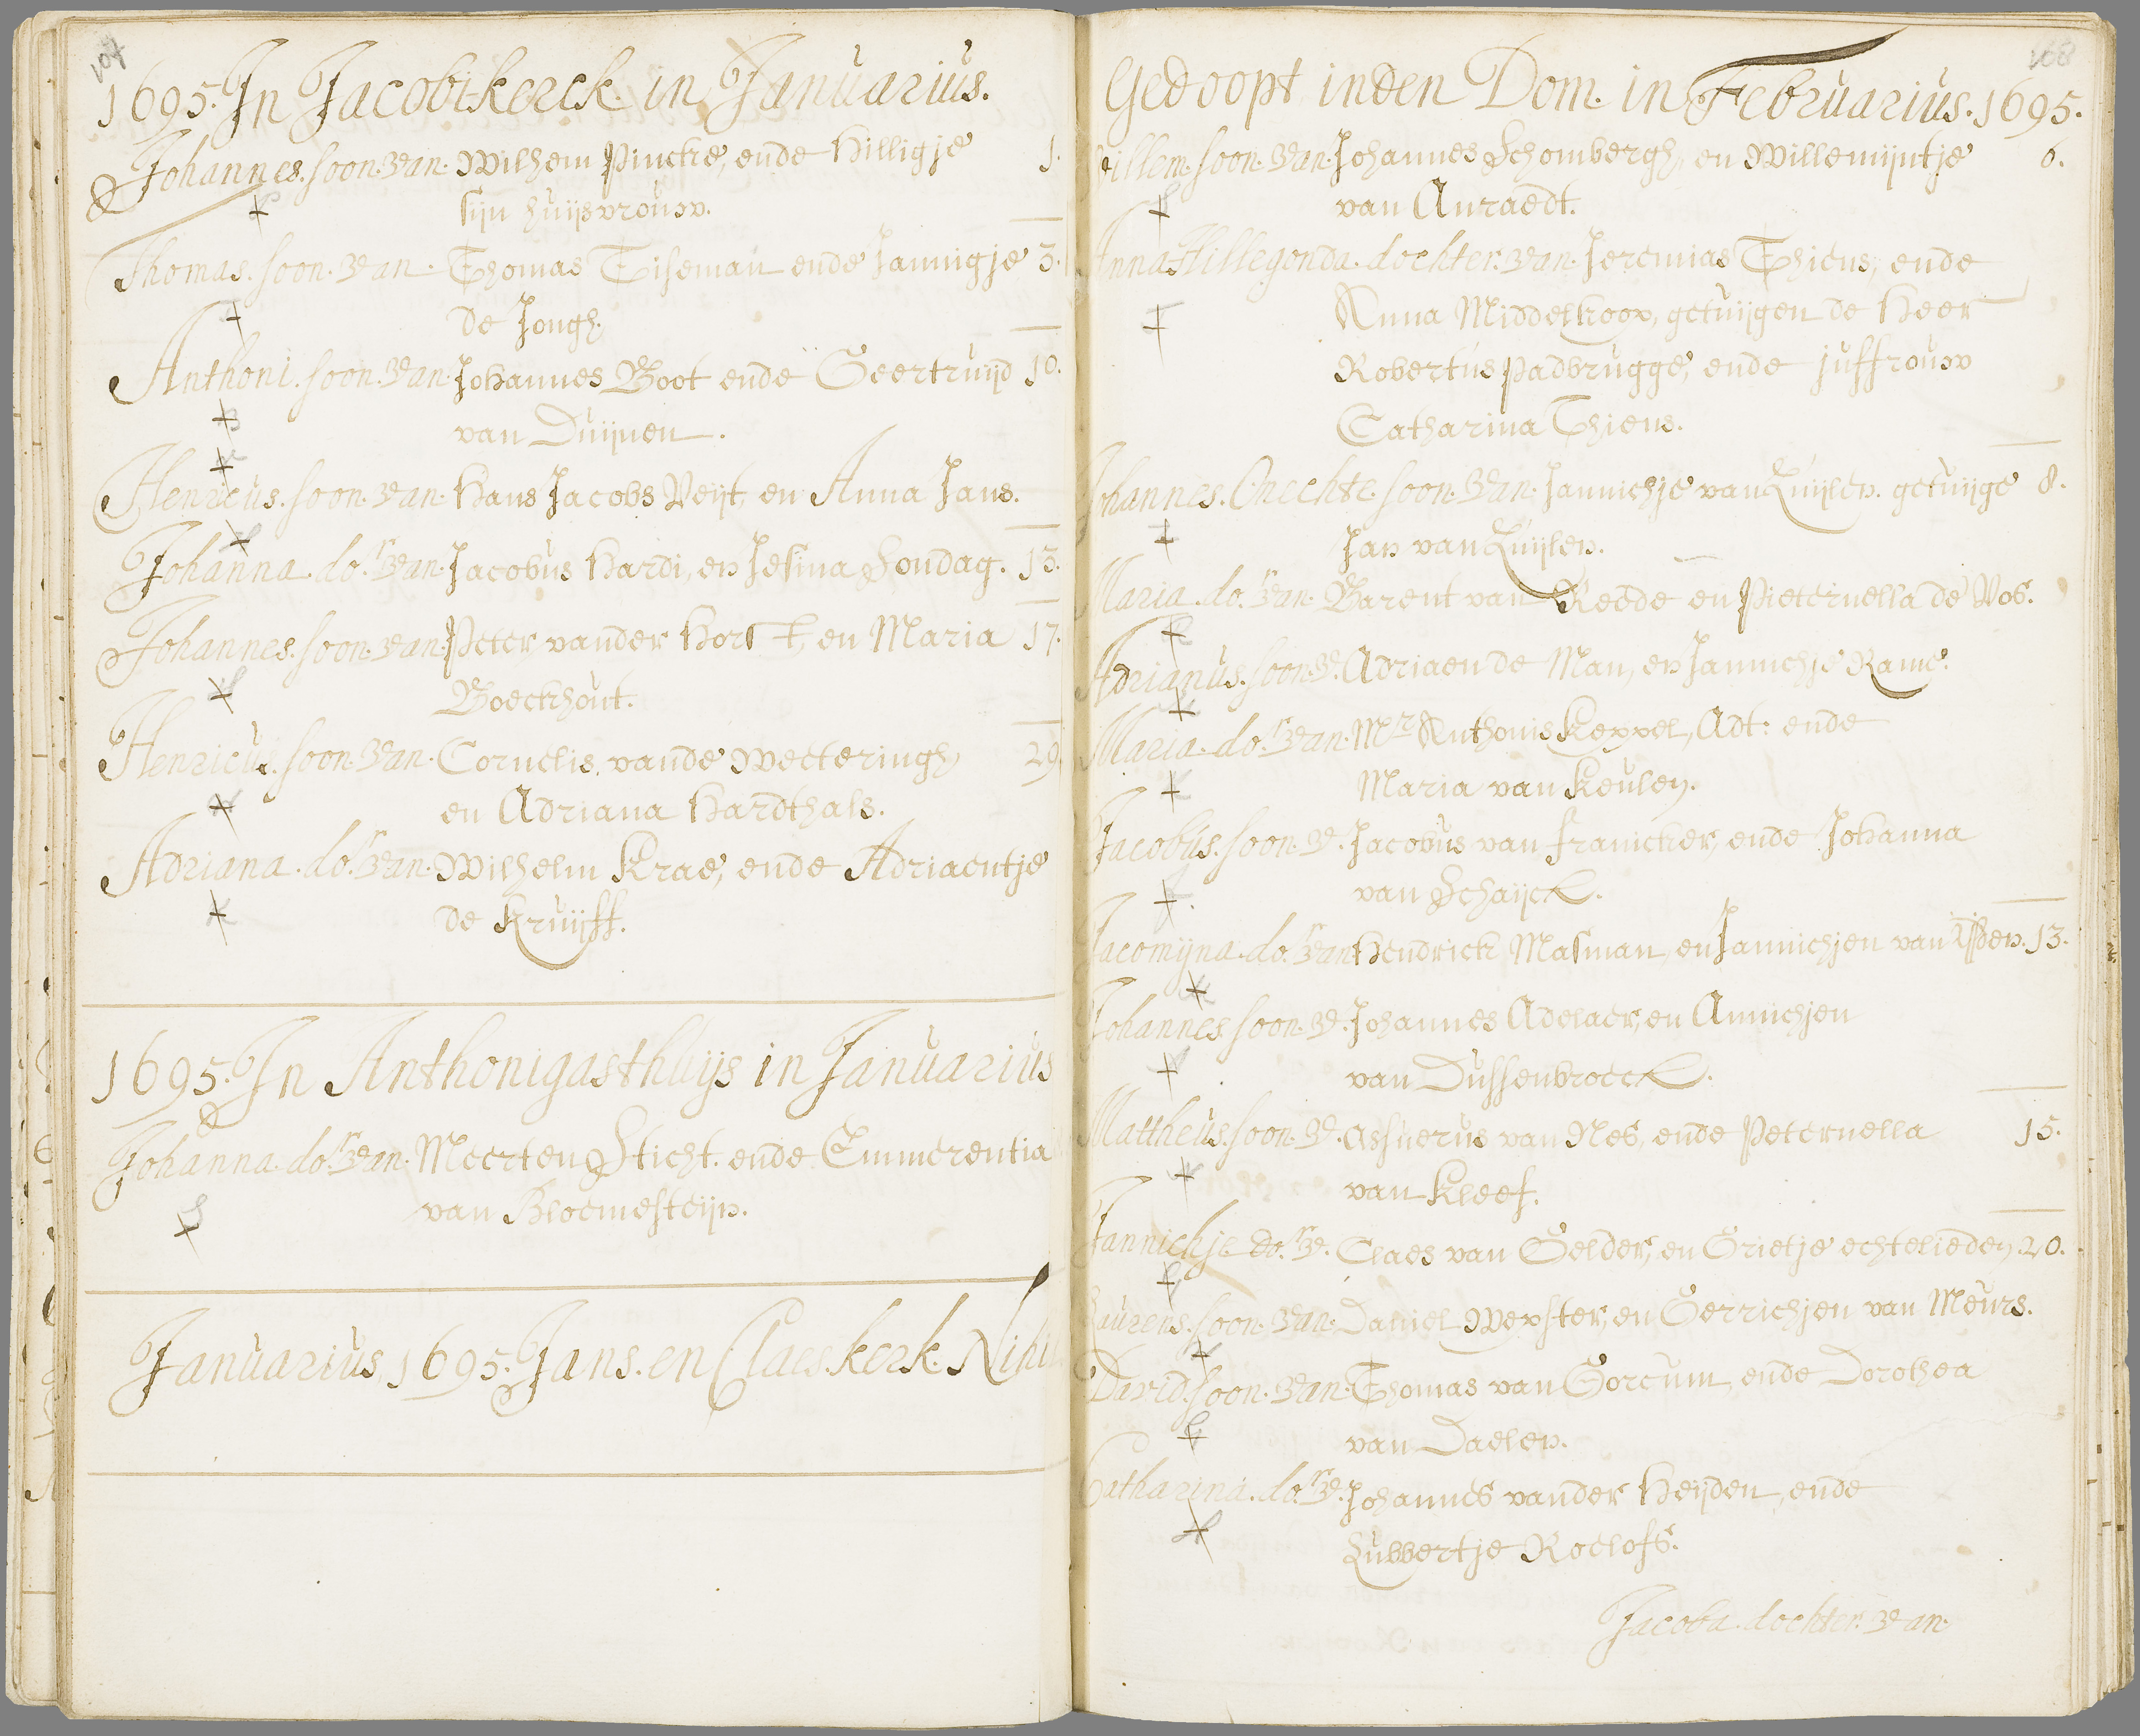 107
1695. In Jacobikerck. in Januarius.
Johannes. soon. van. Wilhem Pincke, ende Hilligje 1.
sijn huijsvrouw.
Thomas. soon. van. Thomas Tiseman ende Jannigje 3.
de Jongh.
Anthoni. soon. van. Johannes Boot ende Geertruijd 10.
van Duijnen.
Henricus. soon. van. Hans Jacobs Veijt, en Anna Jans.
Johanna. do.r van. Jacobus Hardi, en Jesina Sondag. 13.
Johannes. soon. van. Peter vander Horst, en Maria 17.
Boeckhout.
Henricus. soon. van. Cornelis vande Weeteringh 29
en Adriana Hardthals.
Adriana. do.r van. Wilhelm Krae, ende Adriaentje
de Kruijff.
1695. In Anthonigasthuijs in Januarius
Johanna. do.r van. Meerten Sticht. ende Emmerentia
van Bloemesteijn.
Januarius, 1695. Jans. en Claes.kerk. Nihil
168
Gedoopt inden Dom. in Februarius. 1695.
Willem. soon. van. Johannes Schombergh, en Willemijntje 6.
van Anraedt.
Anna Hillegonda. dochter. van. Jeremias Thiens, ende
Anna Middelkoop, getuijgen de Heer
Robertus Padbrugge, ende juffrouw
Catharina Thiens.
Johannes. Onechte. soon. van. Jannichje van Zuijlen. getuijge 8.
Jan van Zuijlen.
Maria. do.r van. Barent van Reede en Pieternella de Vos.
Adrianus. soon. v. Adriaen de Man, en Jannichje Rame.
Maria. do.r van. Mr Anthonis Keppel, Adt: ende
Maria van Keulen.
Jacobus. soon. v. Jacobus van franicker, ende Johanna
van Schaijck.
Jacomijna. do.r van Hendrick Masman, en Jannichjen van 13.
Johannes. soon. v. Johannes Adelaer, en Annichjen
van Dussenbroeck.
Mattheus. soon. v. Assuerus van Nes, ende Peternella 15.
van Kleef.
Jannichje do.r v. Claes van Gelder, en Grietje echtelieden 20.
Laurens. soon. van. Daniel Wepster, en Gerrichjen van Meurs.
David. soon. van. Thomas van Gorcum, ende Dorothea
van Daelen.
Catharina. do.r v. Johannes vander Heijden, ende
Lubbertje Roelofs.
Jacoba. dochter. van.